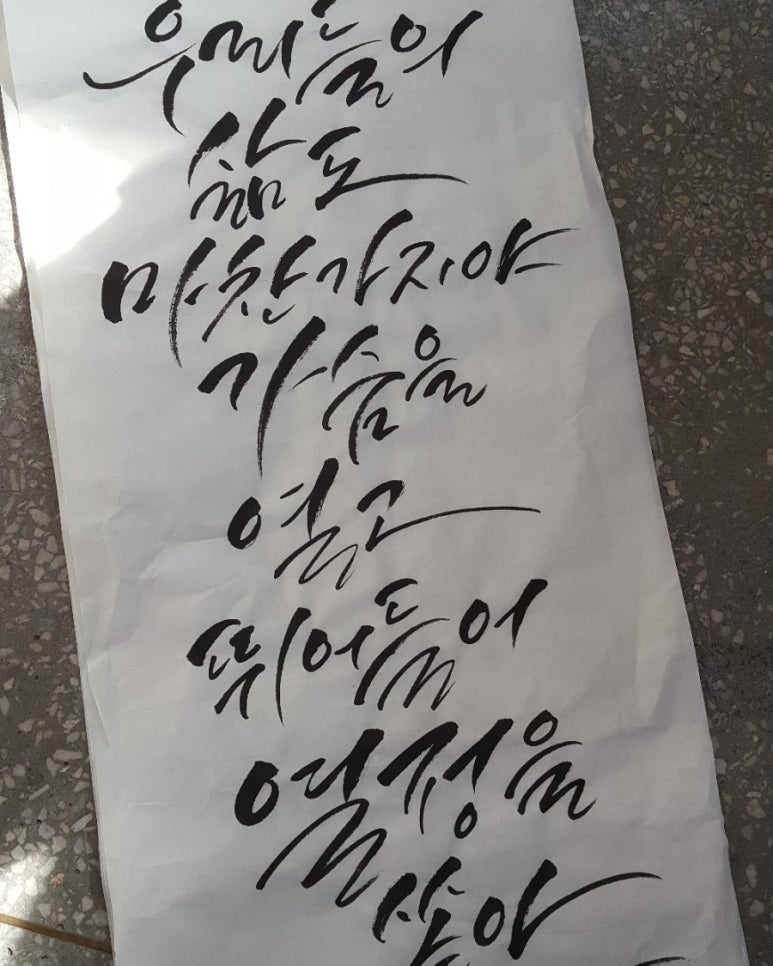 우리들의
삶도
마찬가지야
가슴을
열고
뛰어들어
열정을
쏟아